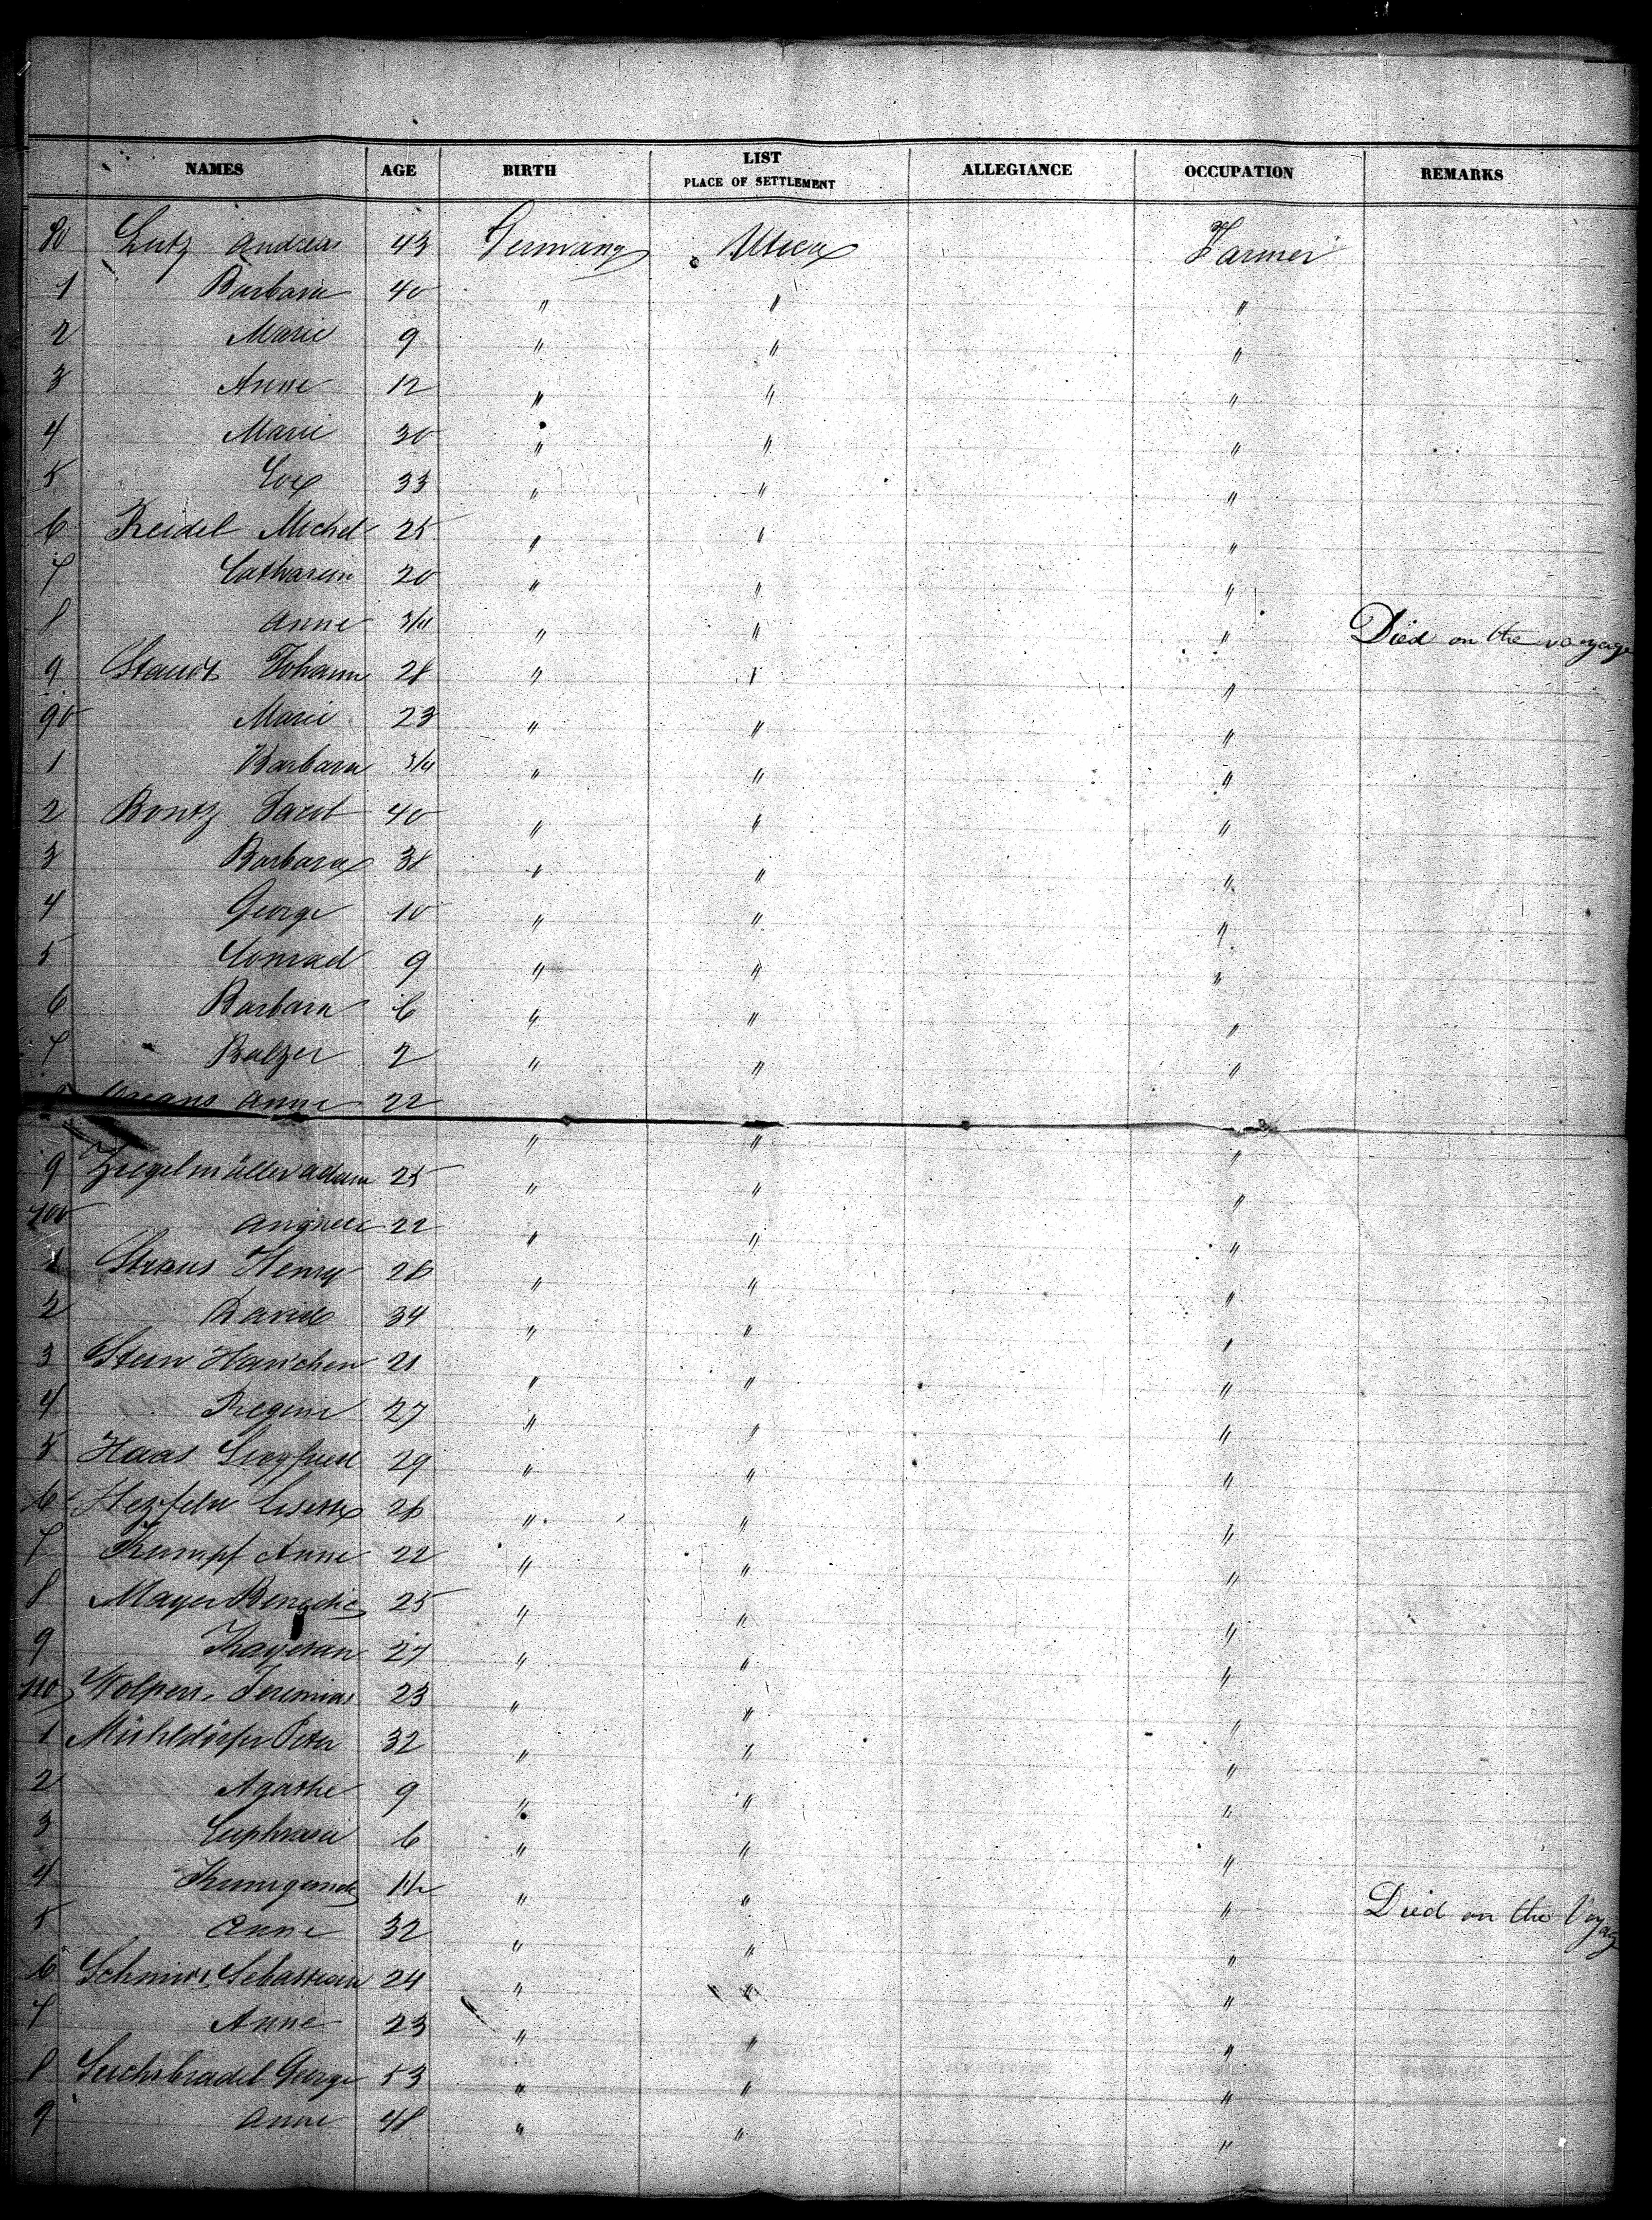 NAMES AGE BIRTH LIST PLACE OF SETTLEMENT ALLEGIANCE OCCUPATION REMARKS
80 Lutz Andreas 43 Germany Utica Farmer
1 Barbara 40 " " "
2 Marie 9 " " "
3 Anne 12 " " "
4 Marie 30 " " "
5 Eva 33 " " "
6 Reidel Michel 25 " " "
7 Catharein 20 " " "
8 Anne 3/11 " " " Died on the voyage
9 Staudt Johann 28 " " "
90 Marie 23 " " "
1 Barbara 3/11 " " "
2 Bontz Jacob 40 " " "
3 Barbara 38 " " "
4 George 10 " " "
5 Conrad 9 " " "
6 Barbara 6 " " "
7 Balzer 2 " " "
Anne 22 " " "
9 Ziegelmüller Adam 25 " " "
100 22 " " "
1 Straus Henry 26 " " "
2 David 34 " " "
3 Stern Hanchen 21 " " "
4 Regine 27 " " "
5 Haas Siegfried 29 " " "
6 Hezfeld Lisette 26 " " "
7 Kumpf Anne 22 " " "
8 Mayer Benedic 25 " " "
9 27 " " "
110 Wolpert Jeremias 23 " " "
1 Mühldörfer Peter 32 " " "
2 Agathe 9 " " "
3 Euphrasie 6 " " "
4 Kunigunde 1 1/2 " " " Died on the Voyage
5 Anne 32 " " "
6 Schmidt Sebastian 24 " " "
7 Anne 23 " " "
8 George 53 " " "
9 Anne 48 " " "